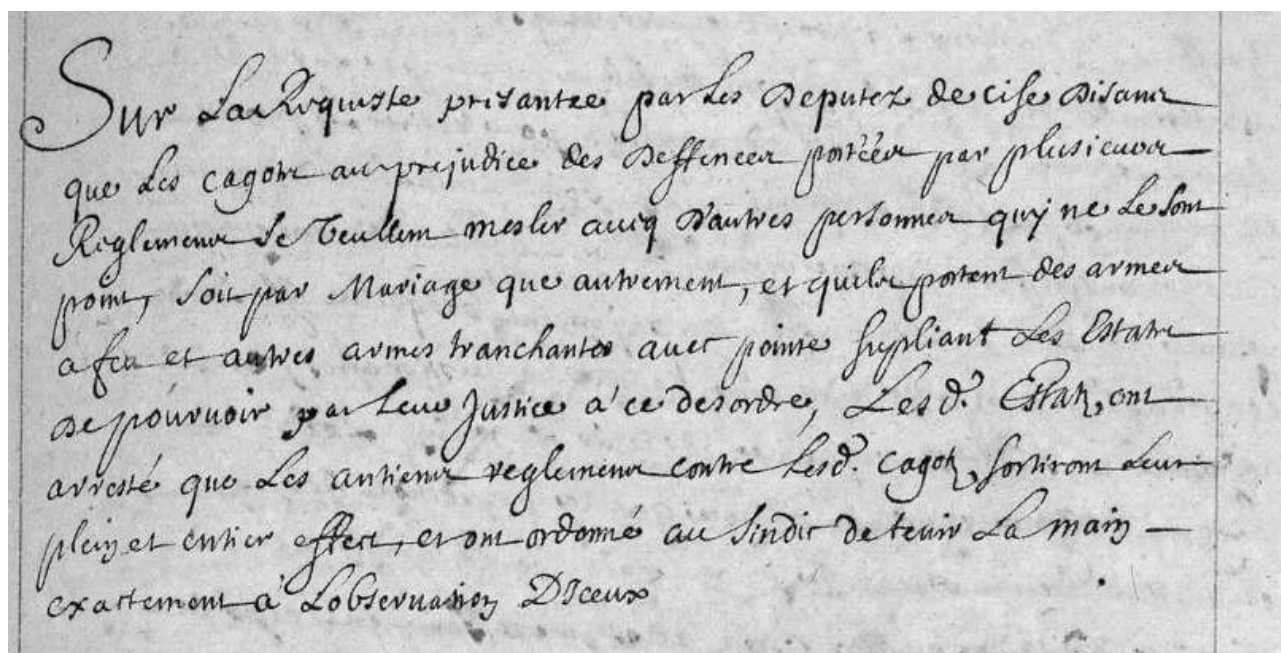 Sur La Requeste presantee par Les Deputez de cise Disant
que Les cagots au prejudice des Deffences portéés par plusieurs
Reglemens se veullent mesler avecq D'autres personnes quy ne Le sont
point, soit par Mariage que autrement, et quils portent des armes
a feu et autres armes tranchantes avec pointe supliant Les Estats
De pourvoir par Leur Justice a ce desordre, Lesd. Estats, ont
arresté que Les antiens reglemens contre Lesd. cagots, sortiront Leur
plein et entier effect, et ont ordonné au sindic de tenir La main
exactement a Lobservation D'Iceux